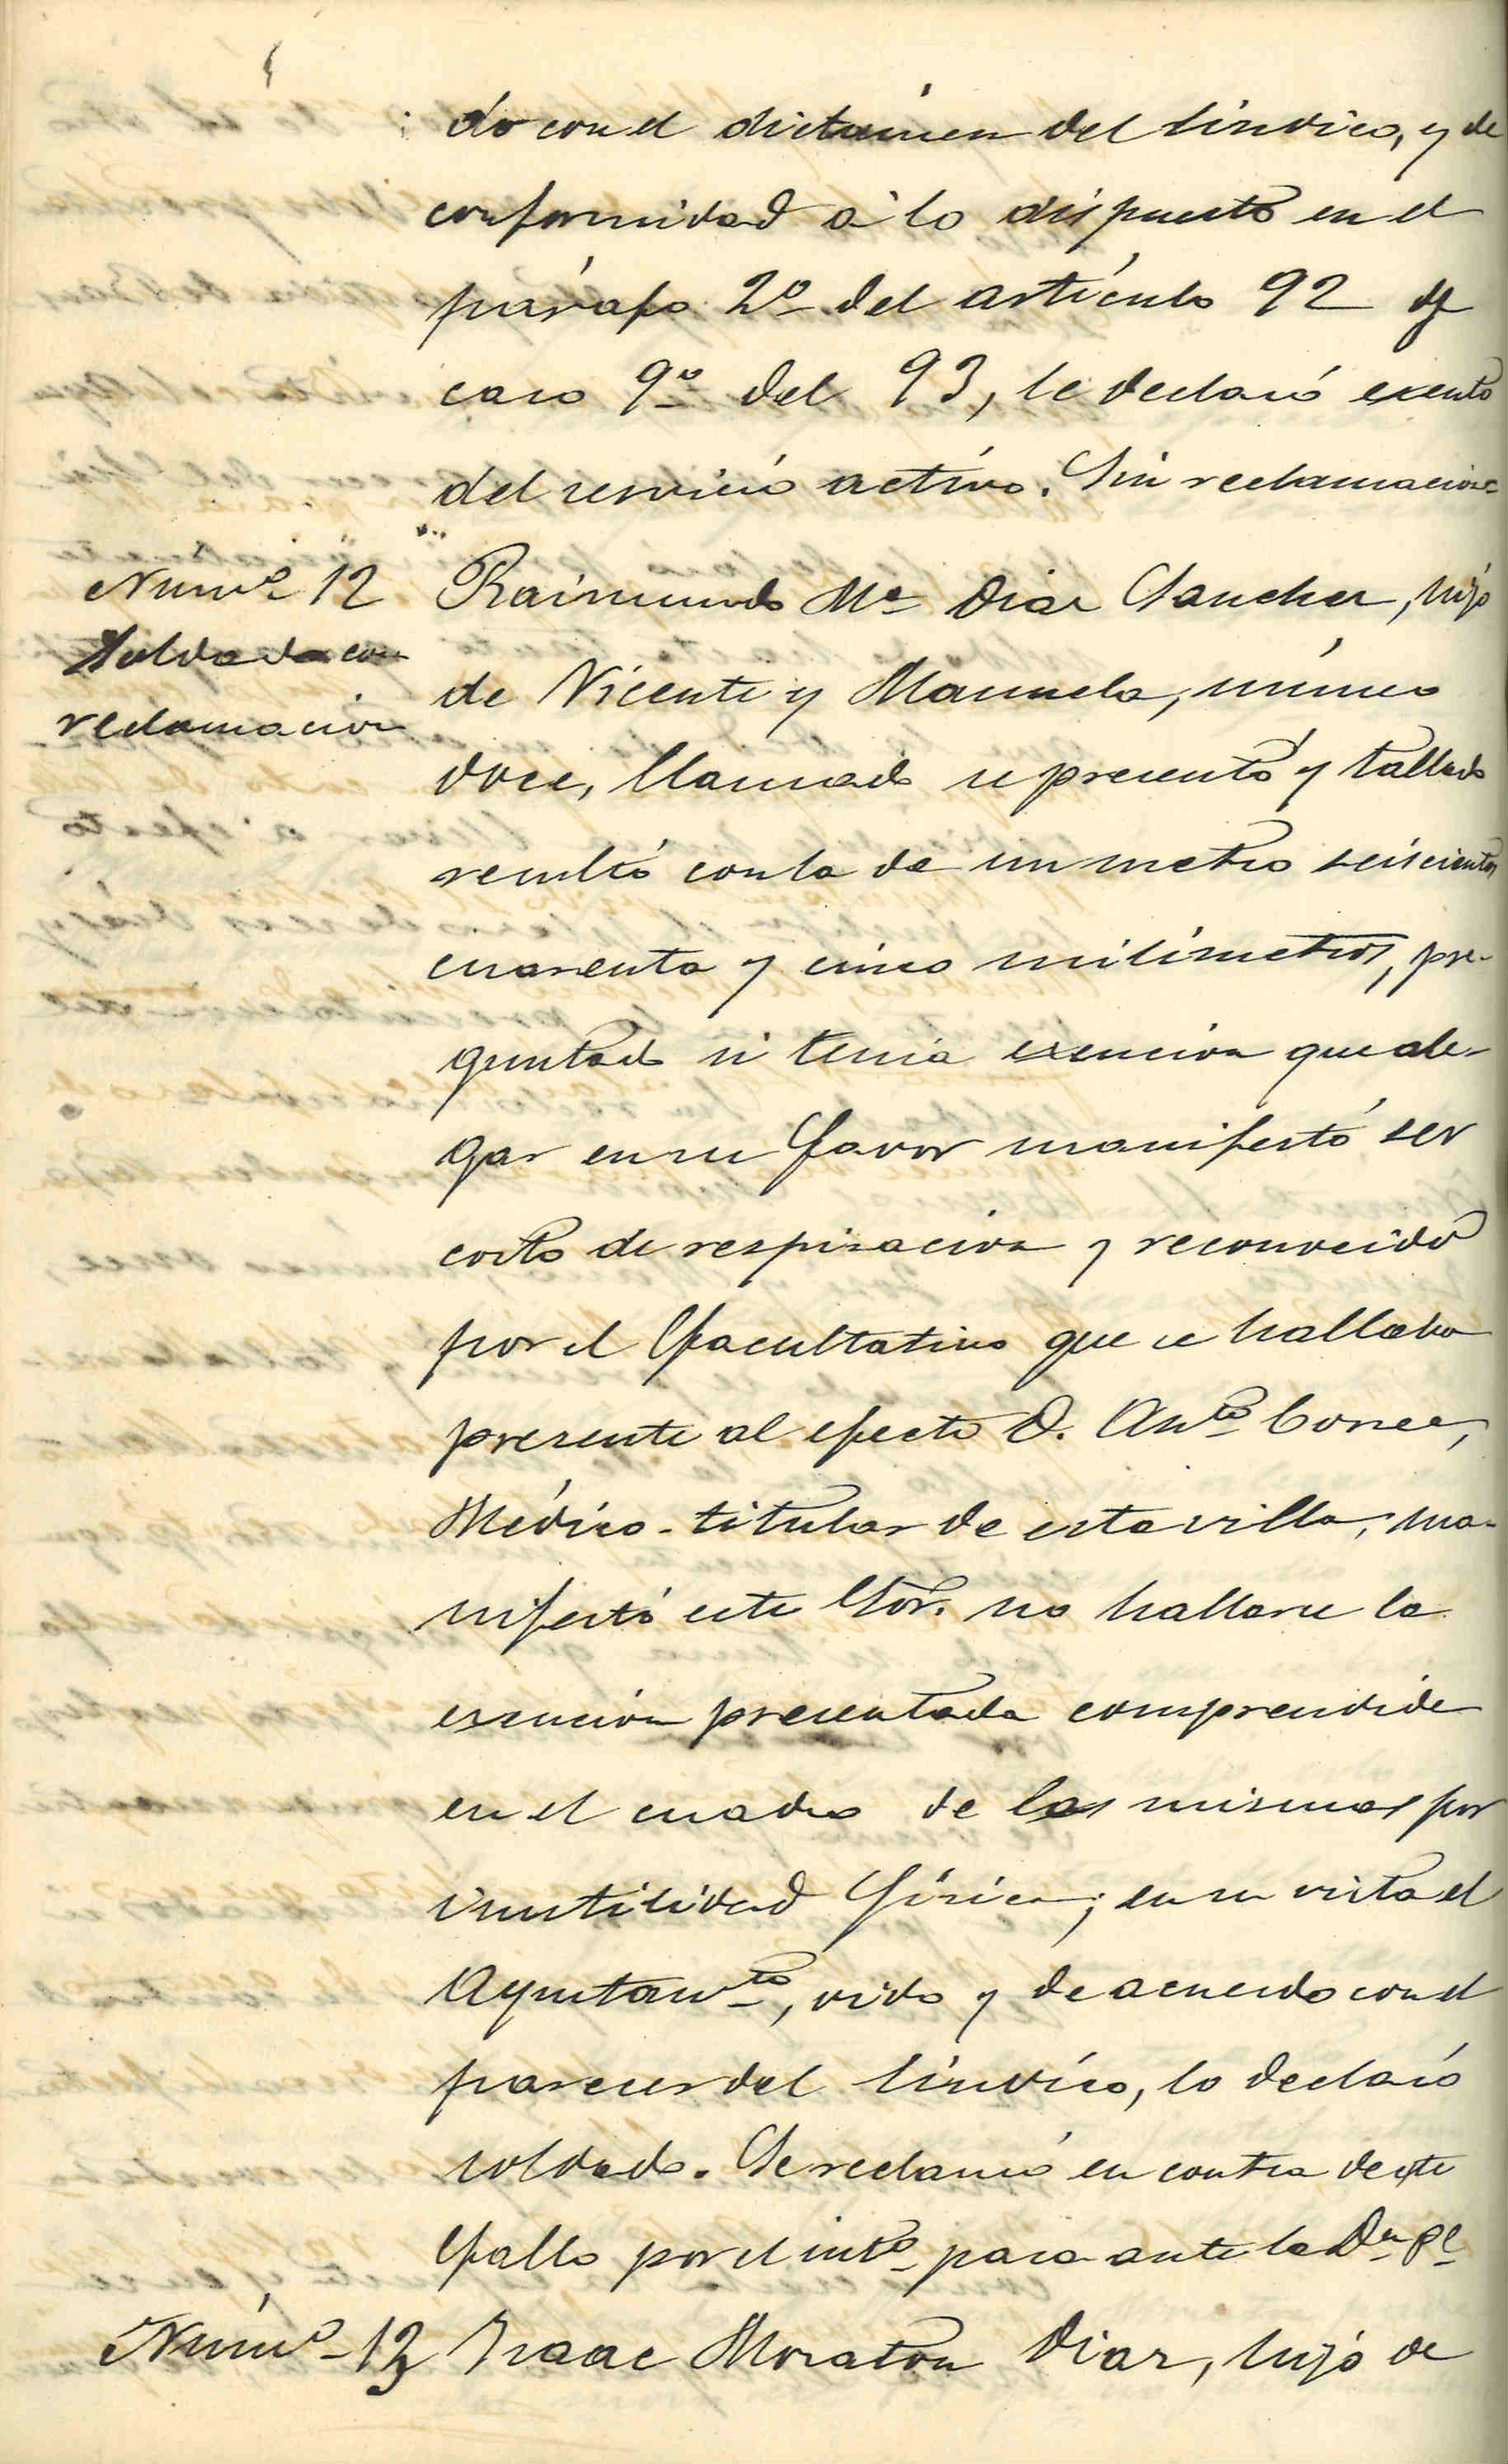 do con el dictámen del Síndico, y de
conformidad á lo dispuesto en el
párrafo 2º del artículo 92 y
caso 9º del 93, le declaró exento
del servicio activo. Sin reclamacion
Numº 12
Soldado con
reclamacion
Raimundo Mª Diaz Sanchez, hijo
de Vicente y Manuela, número
doce, llamado se presentó y tallado
resultó con la de un metro seiscientos
cuarenta y cinco milímetros, pre-
guntado si tenia exencion que ale-
gar en su favor manifestó ser
corto de respiracion y reconocido
por el facultativo que se hallaba
presente al efecto D. Antº
Médico-titular de esta villa, ma-
nifestó este Sor. no hallarse la
exención presentada comprendida
en el cuadro de las mismas por
inutilidad física; en su vista el
Ayuntamtº, oido y de acuerdo con el
parecer del Síndico, lo declaró
soldado. Se reclamó en contra de este
fallo por el intº para ante la Dn Pl
Númº 13 Isaac Moraton Diaz, hijo de